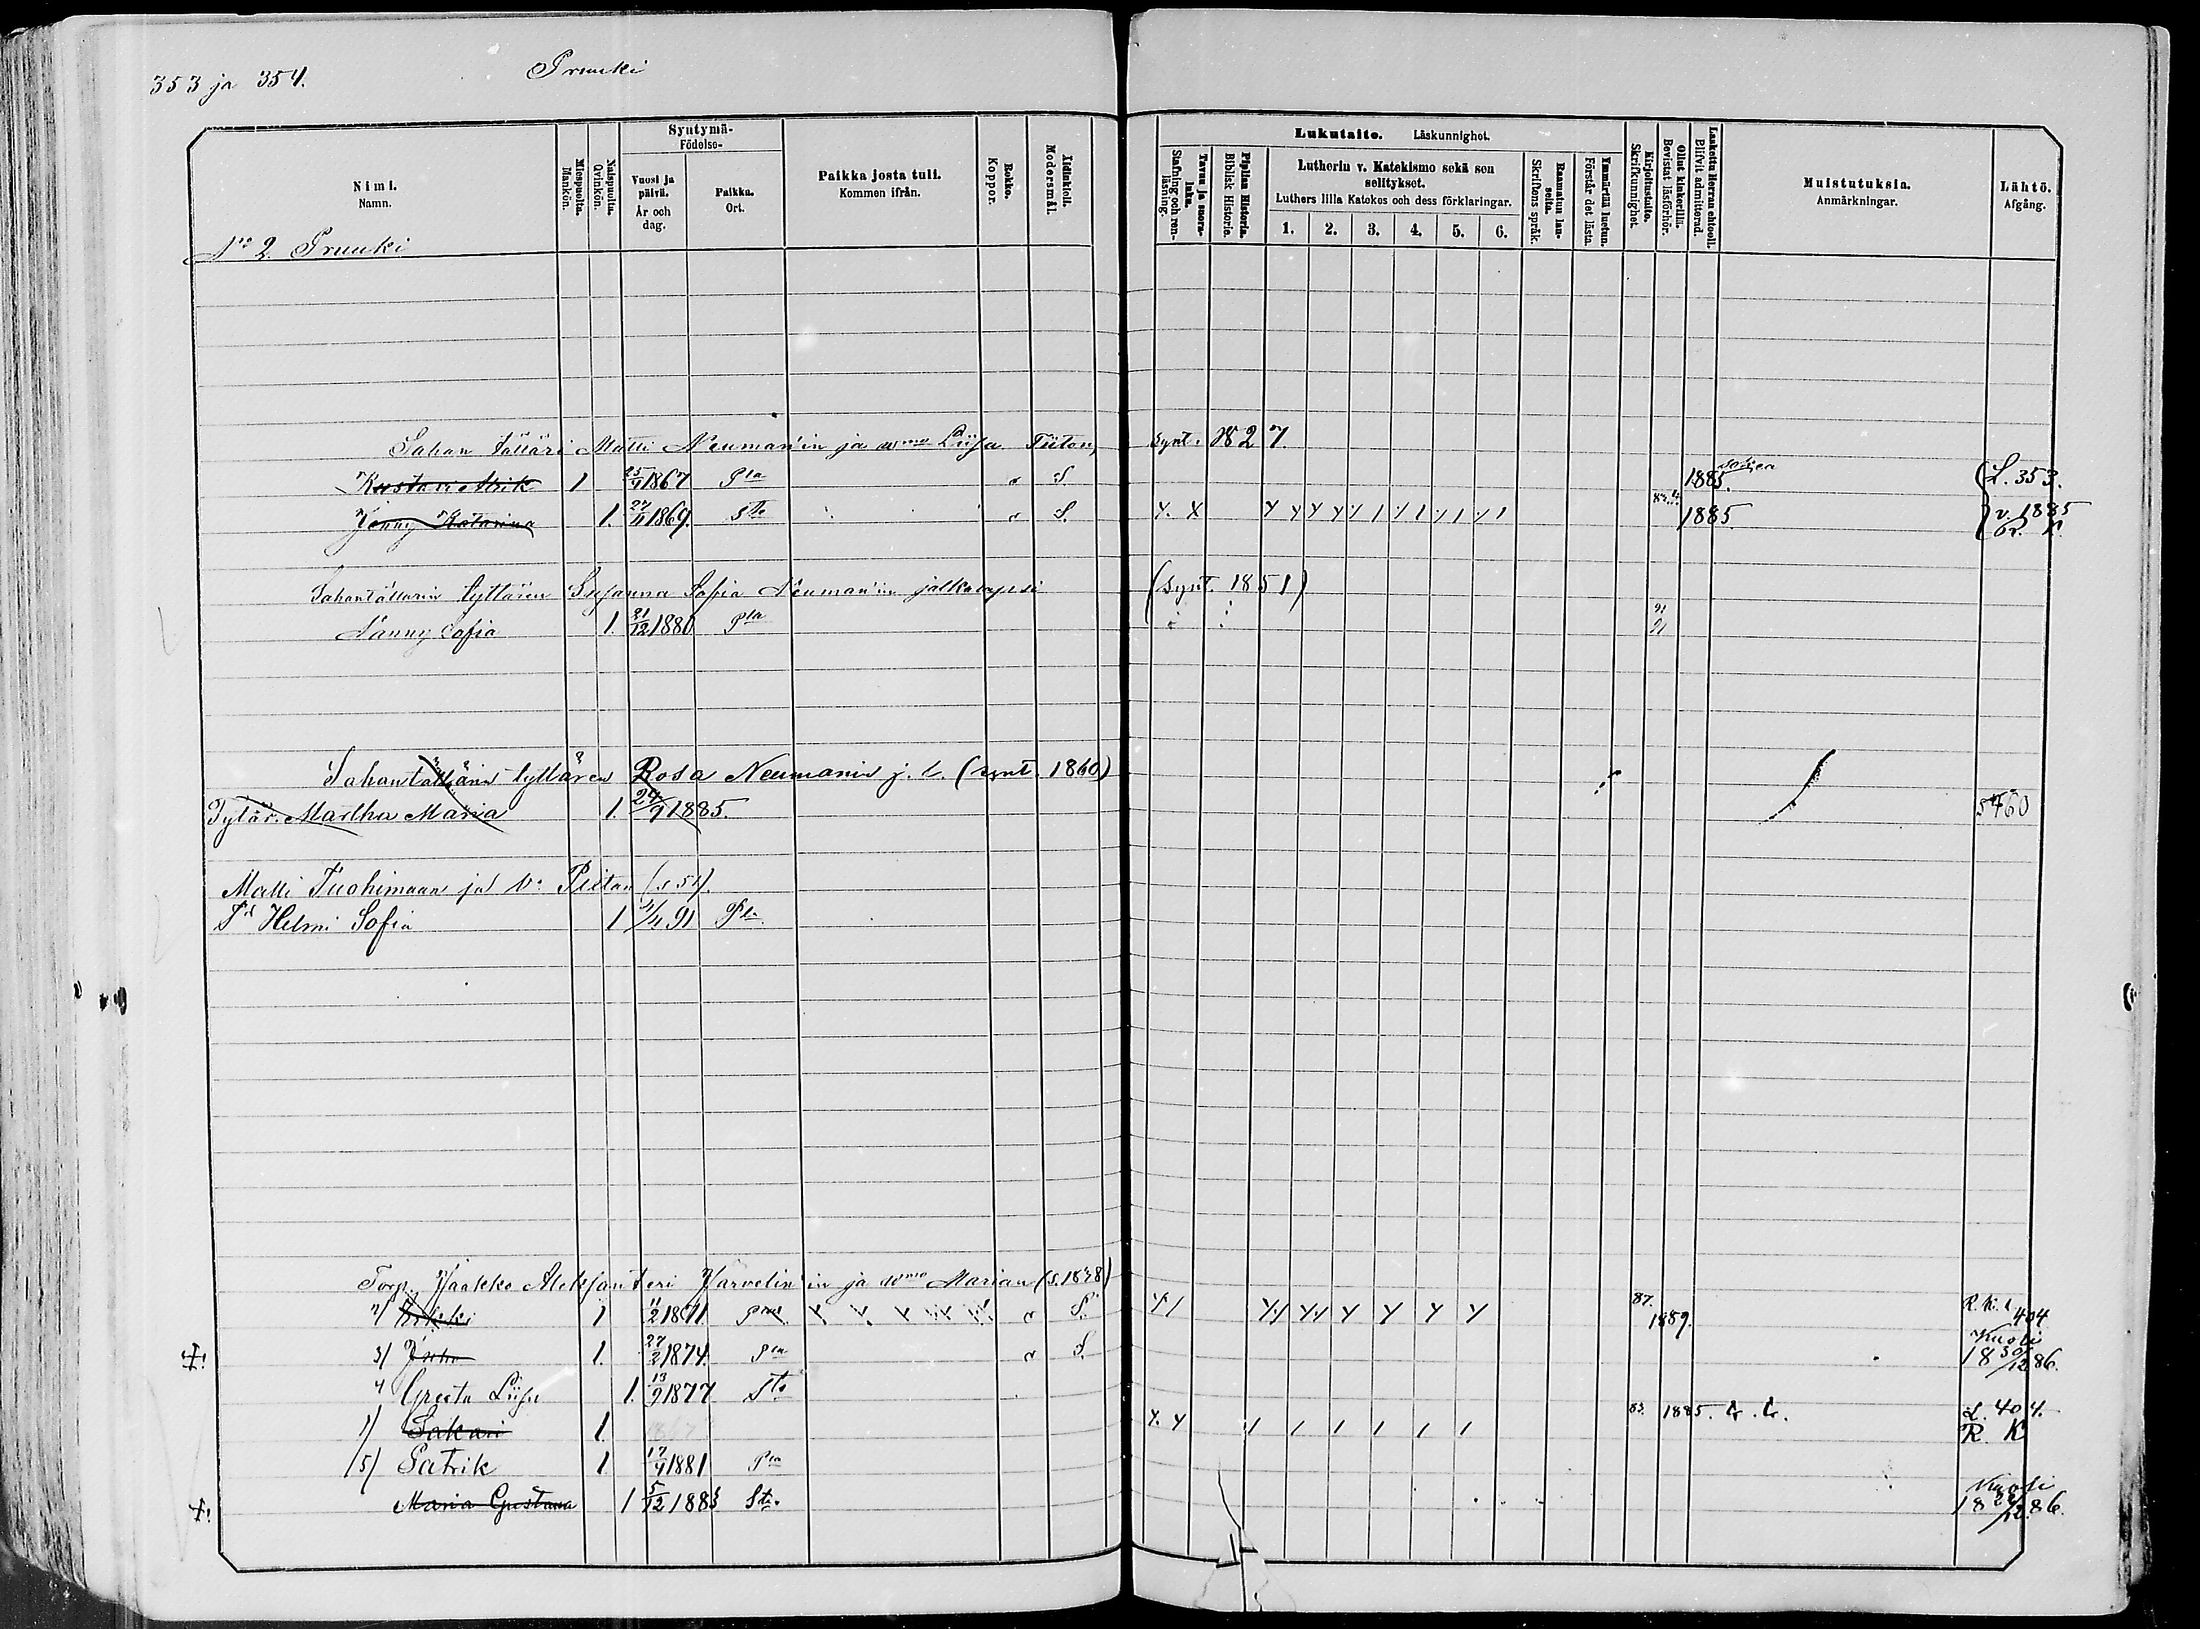 353 ja 354.
Pruuki
Nimi.
Namn.
Miespuolia.
Mankön.
Naispuolia.
Qvinkön.
Syntymä-
Födelse-
Vuosi ja päivä.
År och dag.
Paikka.
Ort.
Paikka josta tuli.
Kommen ifrån.
Rokko.
Koppor.
Äidinkieli.
Modersmål.
Lukutaito. Läskunnighet.
Tavaa ja suora-luku.
Stafning och ren-läsning.
Piplian Historia.
Biblisk Historie.
Lutherin v. Katekismo sekä sen selitykset.
Luthers lilla Katekes och dess förklaringar.
1. 2. 3. 4. 5. 6.
Raamatun lau-seita.
Skriftens språk.
Ymmärtää luetun.
Förstår det lästa.
Kirjoitustaito.
Skrifkunnighet.
Ollut kinkerillä.
Bevistat läsförhör.
Laskettu Herran ehtool.
Blifvit admitterad.
Muistutuksia.
Anmärkningar.
Lähtö.
Afgång.
No 2. Pruuki
Sahan tälläri Matti Neuman'in ja wmo Liisa Tiiton, synt. 1827.
Kustavi Atrik 1 25/9 1867 Pla S. 1885. L. 353.
Jenny Katarina 1. 27/11 1869. Sto S. 1885. v. 1885
Sahantällärin tyttären Susanna Sofia Neuman'in jälkilapsi (synt. 1851)
Nanny Sofia 1. 21/12 1880 Pla 91
91
Sahantällärin tyttären Rosa Neumanin j. l. (synt. 1860)
Tytär. Martha Maria 1. 24/9 1885. 5460
Matti Tuohimaan ja v: Piitan (s 51)
Td Helmi Sofia 1 /4 91 Pla
Torp. Jaakko Aleksanteri Järvelin'in ja wmo Marian (s. 1848)
2) Erkki 1 11/2 1871 S. 87. 1889. R. K. l 404
3) Juho 1. 27/2 1874. Pla S. Kuoli 18 30/12 86.
4 Greeta Liisa 1. 13/9 1877 Sto
1) Sakari 1. 1867 83. 1885. L. 404. R. K
(5) Patrik 1 17/4 1881 Pla
Maria Gustava 1 5/12 1883 Sto. Kuoli 18 /12 86.